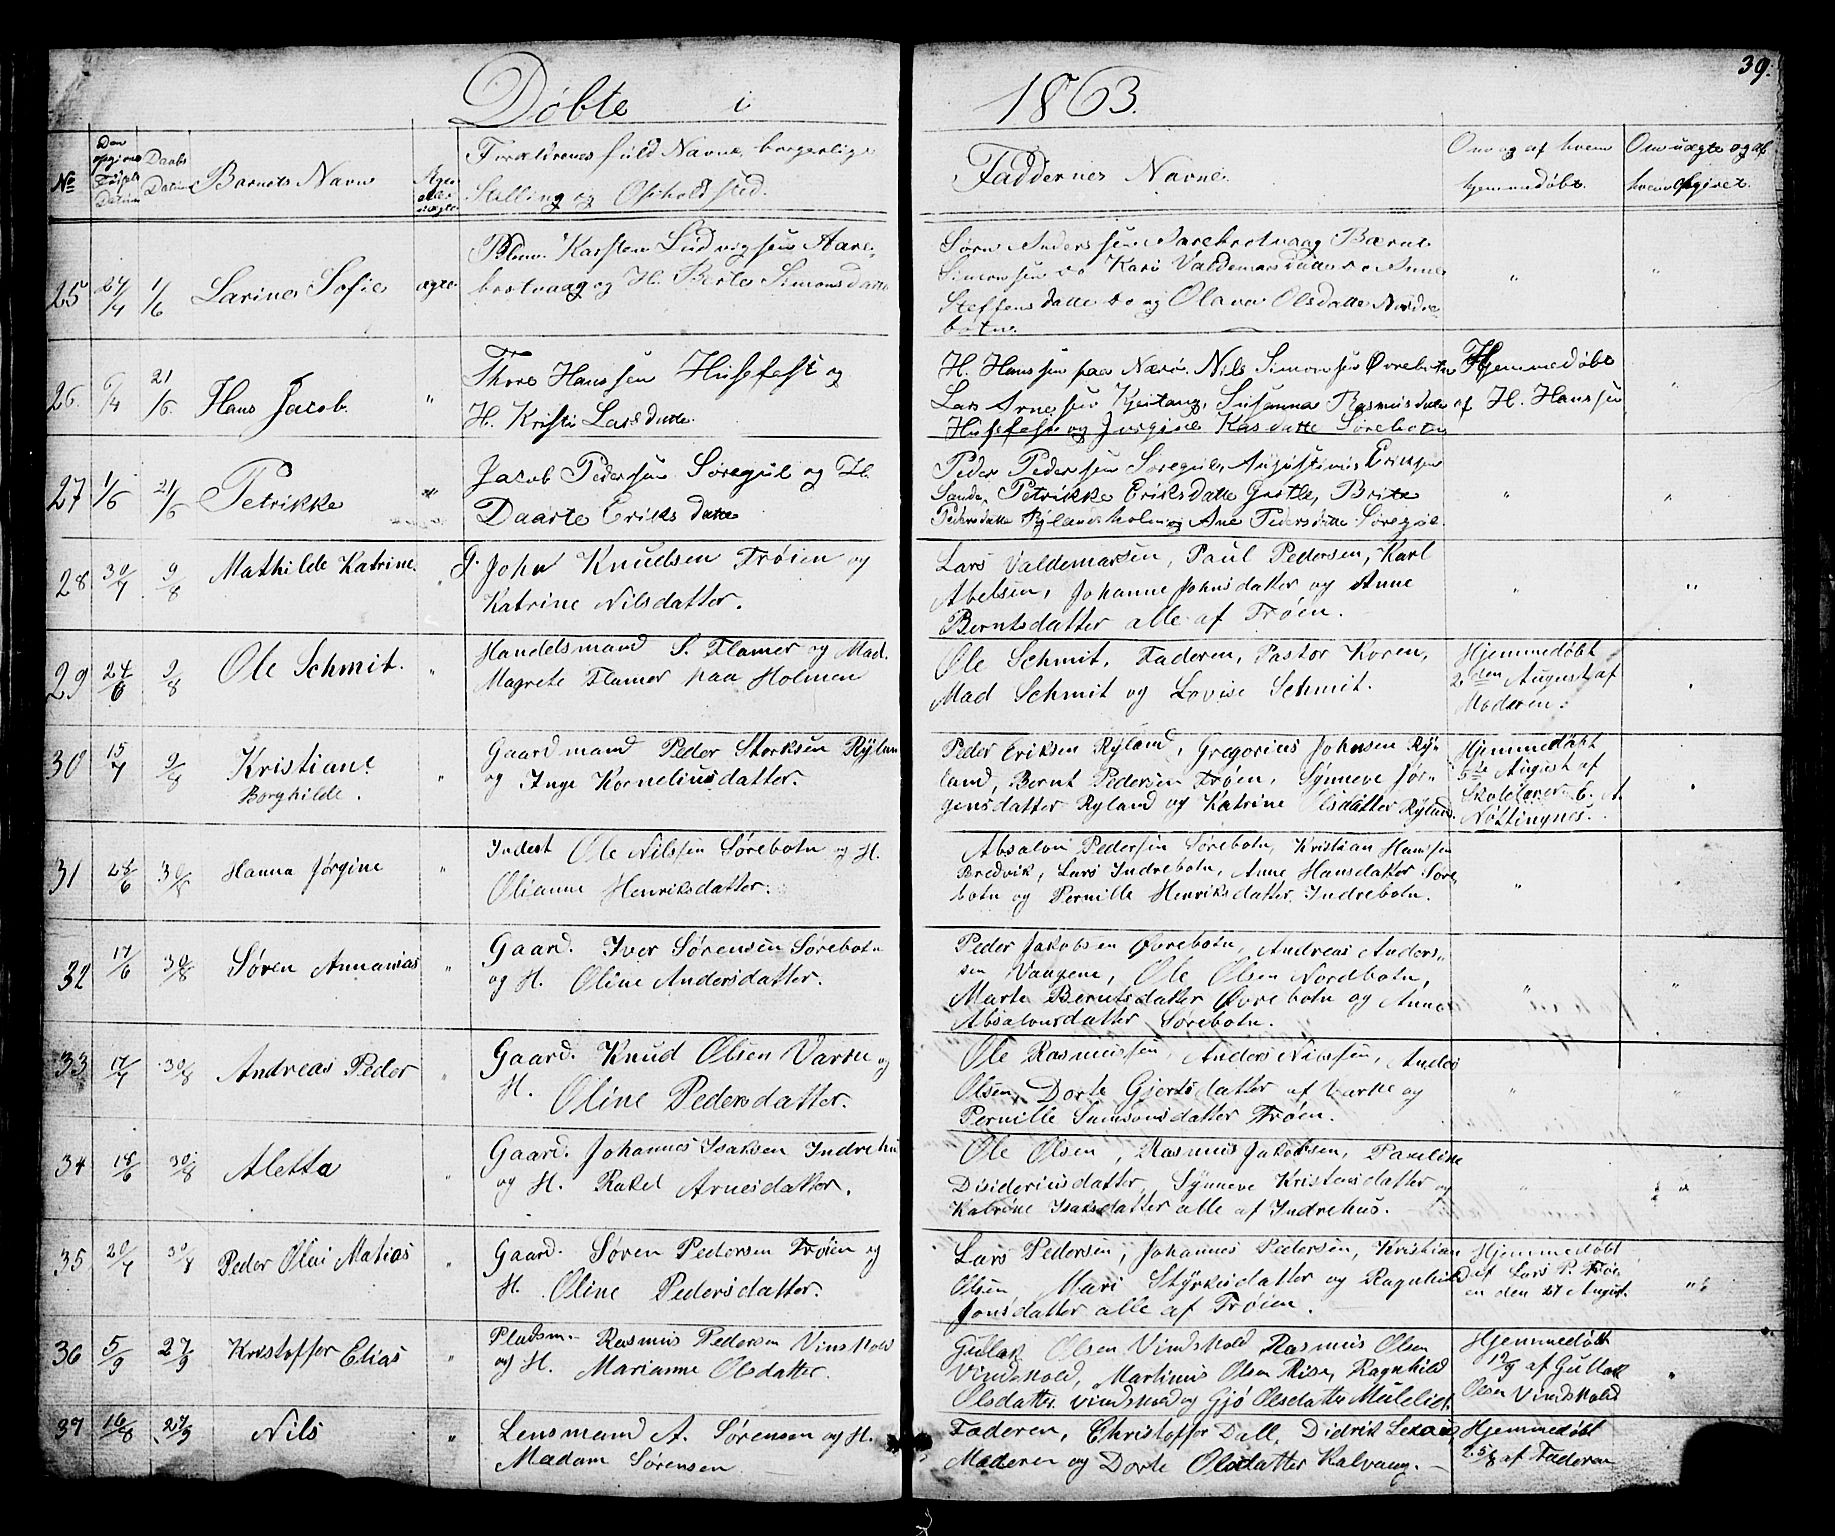 39.
Døbte i 1863.
No
Den opgivne Fødsels Datum
Daabs Datum
Barnets Navn
Ægte eller uægte
Forældrenes fuld Navne, borgerlige
Stilling og Opholdsted.
Faddernes Navne.
Om og af hvem
hjemmedøbt.
Om uægte og af
hvem opgivet.
25 27/4 1/6 Larine Sofie ægte
Karsten Ludvigsen Aare-
brotvaag og H. Berte Simonsdatte
Sørn Anderssen Aarebrotvaag Bærnt
Simonsen do Kari Valdemarsdatte do Anne
Steffensdatte do og Olava Olsdatte Nordre
botn.
26. 6/4 21/6. Hans Jacob. "
Thore Hanssen Husefest og
H. Kristi Larsdatte.
H. Hanssen paa Nærø. Nils Simonsen Øvrebotn
Lars Arnesen Kjeitang, Susanna Rasmusdatte
Husefest og Jørgine Larsdatte Sørebotn
Hjemmedøbt
af H. Hanssen
27 1/6 21/6 Petrikke "
Jacob Pedersen Søregul og H.
Daarte Eriksdatte
Peder Pedersen Søregul, Augustinus Eriksen
Sande, Petrikke Eriksdatte Grotle, Brite
Pedersdatte Rylandsholm og Ane Pedersdatte Søregul
28 30/7 9/8 Mathilde Katrine. "
G. John Knudsen Trøien og
Katrine Nilsdatter.
Lars Valdemarsen, Paul Pedersen, Karl
Abelsen, Johanne Johnsdatter og Anne
Berntsdatter alle af Trøien.
29 24/6 9/8 Ole Schmit. "
Handelsmand S. Flamer og Mad.
Magrete Flamer paa Holmen
Ole Schmit, Faderen, Pastor Koren,
Mad Schmit og Lovise Schmit.
Hjemmedøbt
2den August af
Moderen.
30 15/7 9/8 Kristiane "
Borghilde.
Gaardmand Peder Storksen Rylan
og Inge Korneliusdatter.
Peder Eriksen Ryland, Gregorius Johnsen Ry-
land, Bernt Pedersen Trøen, Synneve Jør-
gensdatter Ryland og Katrine Olsdatter Ryland.
Hjemmedøbt
5te August af
Skolelærer E. A.
Nøttingnes.
31 28/6 30/8 Hanna Jørgine "
Inderst Ole Nilssen Sørebotn og H.
Olianne Henriksdatter.
Absalon Pedersen Sørebotn, Kristian Hanssen
Bredvik, Lars Indrebotn, Anne Hansdatter Søre
botn og Pernille Henriksdatter Indrebotn.
32 17/6 30/8 Søren Annanias "
Gaard. Iver Sørensen Sørebotn
og H. Oline Andersdatter.
Peder Jakobsen Øvrebotn, Andreas Anders-
sen Vaagene, Ole Olsen Nordbotn,
Marte Berntsdatter Øvrebotn og Anne
Absalonsdatter Sørebotn.
33 17/7 30/8 Andreas Peder "
Gaard. Knud Olsen Varøn og
H. Oline Pedersdatter.
Ole Rasmussen, Anders Nilssen, Anders
Olsen, Dorte Gjertsdatter af Varøe og
Pernille Samsonsdatter Trøen.
34 18/6 30/8 Aletta "
Gaard. Johannes Isaksen Indrehus
og H. Rakel Arnesdatter.
Ole Olsen, Rasmus Jakobsen, Pauline
Disideriusdatter, Synneve Kristensdatter og
Katrine Isaksdatter alle af Indrehus.
35 20/7 30/8 Peder Olai Matias "
Gaard. Søren Pedersen Trøien og
H. Oline Pedersdatter.
Lars Pedersen, Johannes Pedersen, Kristian
Olsen Mari Styrkesdatter og Ragnhild
Jonsdatter alle af Trøien.
Hjemmedøbt
af Lars P. Trøi
en den 27 August.
36 5/9 27/9 Kristoffer Elias "
Pladsm. Rasmus Pedersen Vindskold
og H. Marianne Olsdatter.
Gullak Olsen Vindskold Rasmus Olsen
Vindskold, Martinus Olsen Rise, Ragnhild
Olsdatter Vindskold og Gjø Olsdatter Mulelid.
Hjemmedøbt
12/9 af Gullak
Olsen Vindskold
37 16/8 27/9 Nils "
Lensmand A. Sørensen og H.
Madam Sørensen
Faderen, Christoffer Dall, Didrik
Moderen og Dorte Olsdatter Kalvaag.
Hjemmedøbt
25/8 af Faderen